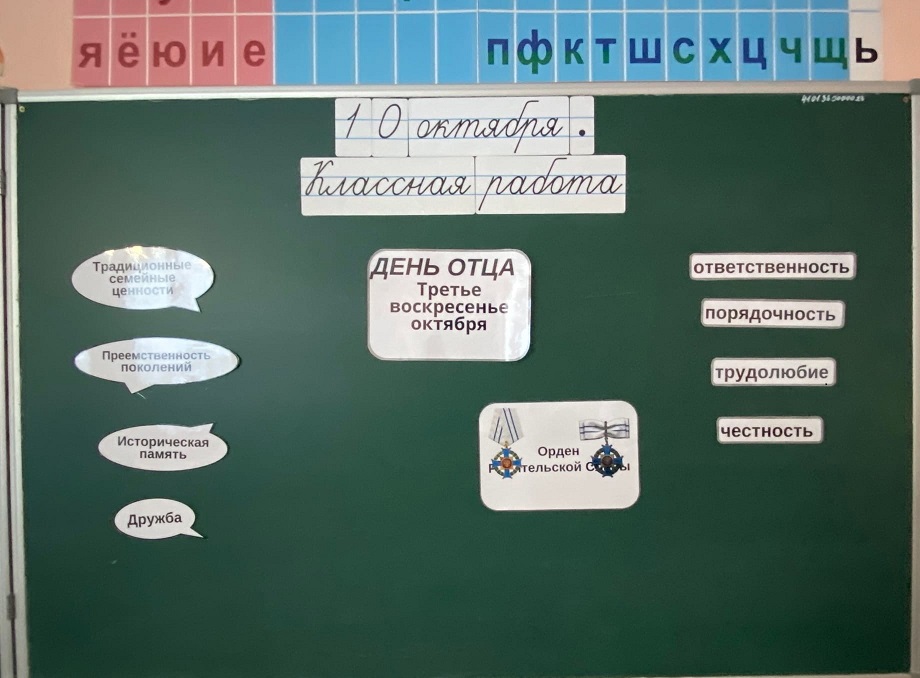 яёюие
пфктшсхцчщь
10 октября.
Классная работа
Традиционные
семейные
ценности
Преемственность
поколений
Историческая
память
Дружба
ДЕНЬ ОТЦА
Третье
воскресенье
октября
Орден
ответственность
порядочность
трудолюбие
честность